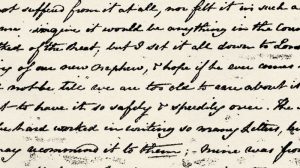 not suffered from it at all, nor felt it in such a
imagine it would be anything in the Cou
ked of the heat, but I set it all down to Lon
y of our new nephew, & hope if he ever comes
not be till we are too old to care about it
t to have it so safely & speedily over. The
hard worked in writing so many letters, b
may recommend it to them; mine was fr